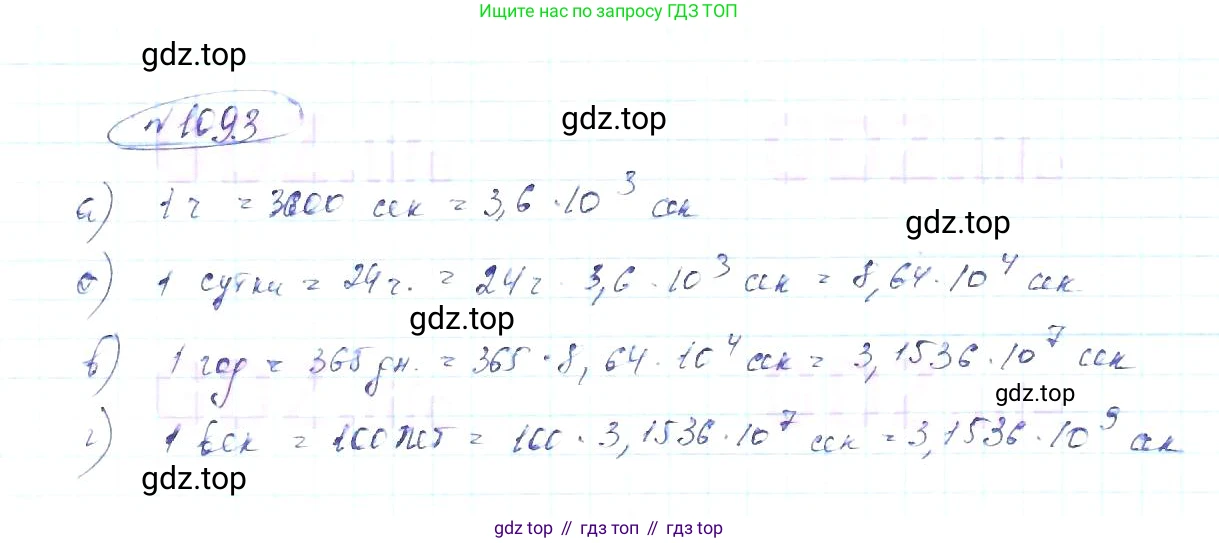 Ищите нас по запросу ГДЗ ТОП
gdz.top
№1093
gdz.top
а) 1 ч = 3600 сек = 3,6 · 10³ сек
gdz.top
б) 1 сутки = 24 ч. = 24 ч · 3,6 · 10³ сек = 8,64 · 10⁴ сек.
gdz.top
в) 1 год = 365 дн. = 365 · 8,64 · 10⁴ сек = 3,1536 · 10⁷ сек
gdz.top
г) 1 век = 100 лет = 100 · 3,1536 · 10⁷ сек = 3,1536 · 10⁹ сек
gdz.top
gdz top // гдз топ // гдз top